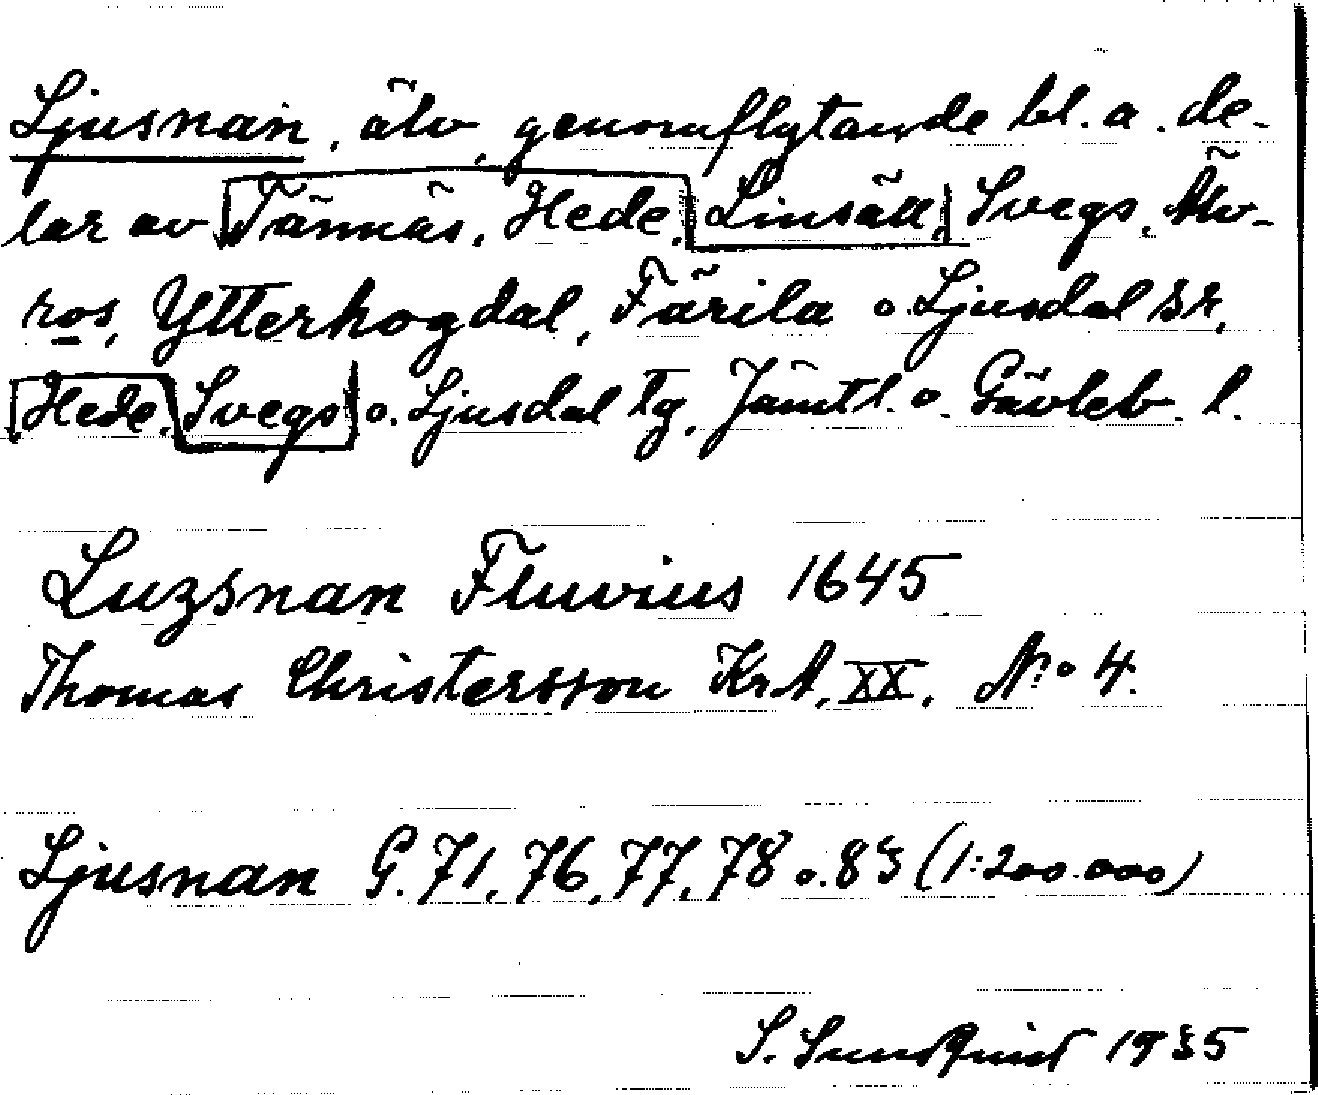 Ljusnan, älv, genomflytande bl. a. de-
lar av Tännäs, Hede, Linsäll, Svegs, Älv-
ros, Ytterhogdal, Färila o. Ljusdal sr,
Hede, Svegs o. Ljusdal tg, Jämtl. o. Gävleb. l.
Luzsnan Fluvius 1645
Thomas Christersson KrA, XX, No 4.
Ljusnan G. 71, 76, 77, 78 o. 83 (1:200.000)
S. Sundquist 1935